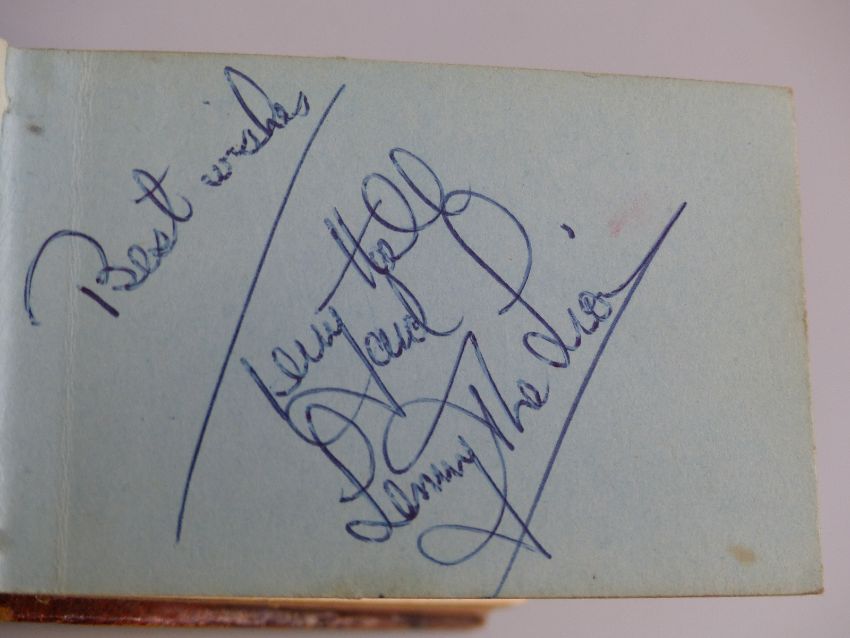 Best wishes
Terry Hall
and
Lenny The Lion